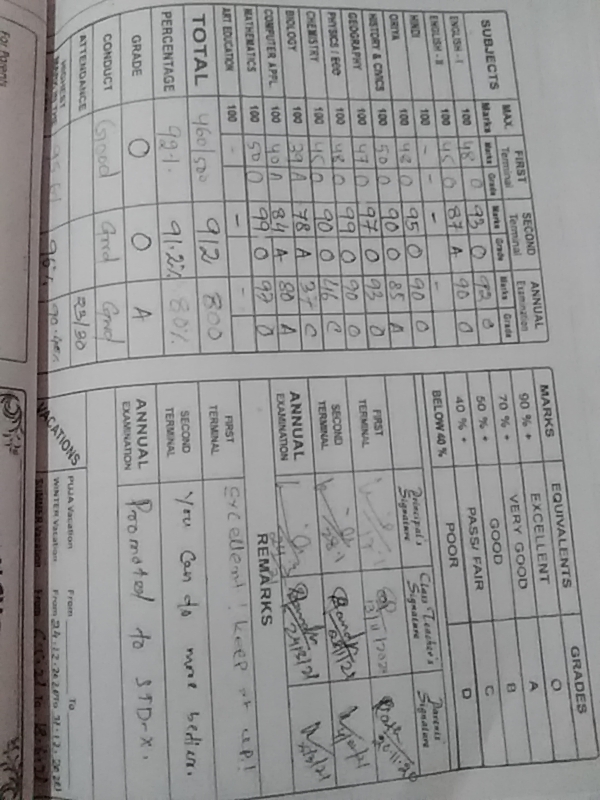 SUBJECTS MAX. Marks FIRST Terminal Marks Grade SECOND Terminal Marks Grade ANNUAL Examination Marks Grade
ENGLISH - I 100 48 O 93 O 92 O
ENGLISH - II 100 45 O 87 A 90 O
HINDI 100 - - - -
ORIYA 100 48 O 95 O 90 O
HISTORY & CIVICS 100 50 O 90 O 85 A
GEOGRAPHY 100 47 O 97 O 93 O
PHYSICS / ECO 100 48 O 99 O 90 O
CHEMISTRY 100 45 O 90 O 46 C
BIOLOGY 100 39 A 78 A 37 C
COMPUTER APPL. 100 40 A 84 A 80 A
MATHEMATICS 100 50 O 99 O 97 O
ART EDUCATION 100 - - -
TOTAL 460/500 912 800
PERCENTAGE 92% 91.2% 80%
GRADE O O A
CONDUCT Good Good Good
ATTENDANCE 23/30
HIGHEST 96%
MARKS EQUIVALENTS GRADES
90 % + EXCELLENT O
VERY GOOD A
70 % + GOOD B
50 % + PASS/ FAIR C
40 % + POOR D
BELOW 40 %
Principal's Signature Class Teacher's Signature Parents' Signature
FIRST TERMINAL
SECOND TERMINAL
ANNUAL EXAMINATION
REMARKS
FIRST TERMINAL Excellent! Keep it up!
SECOND TERMINAL You can do more better.
ANNUAL EXAMINATION Promoted to STD-X.
VACATIONS
PUJA Vacation From To
WINTER Vacation From 24.12.2020 To 31.12.2020
SUMMER Vacation From To
For Parents